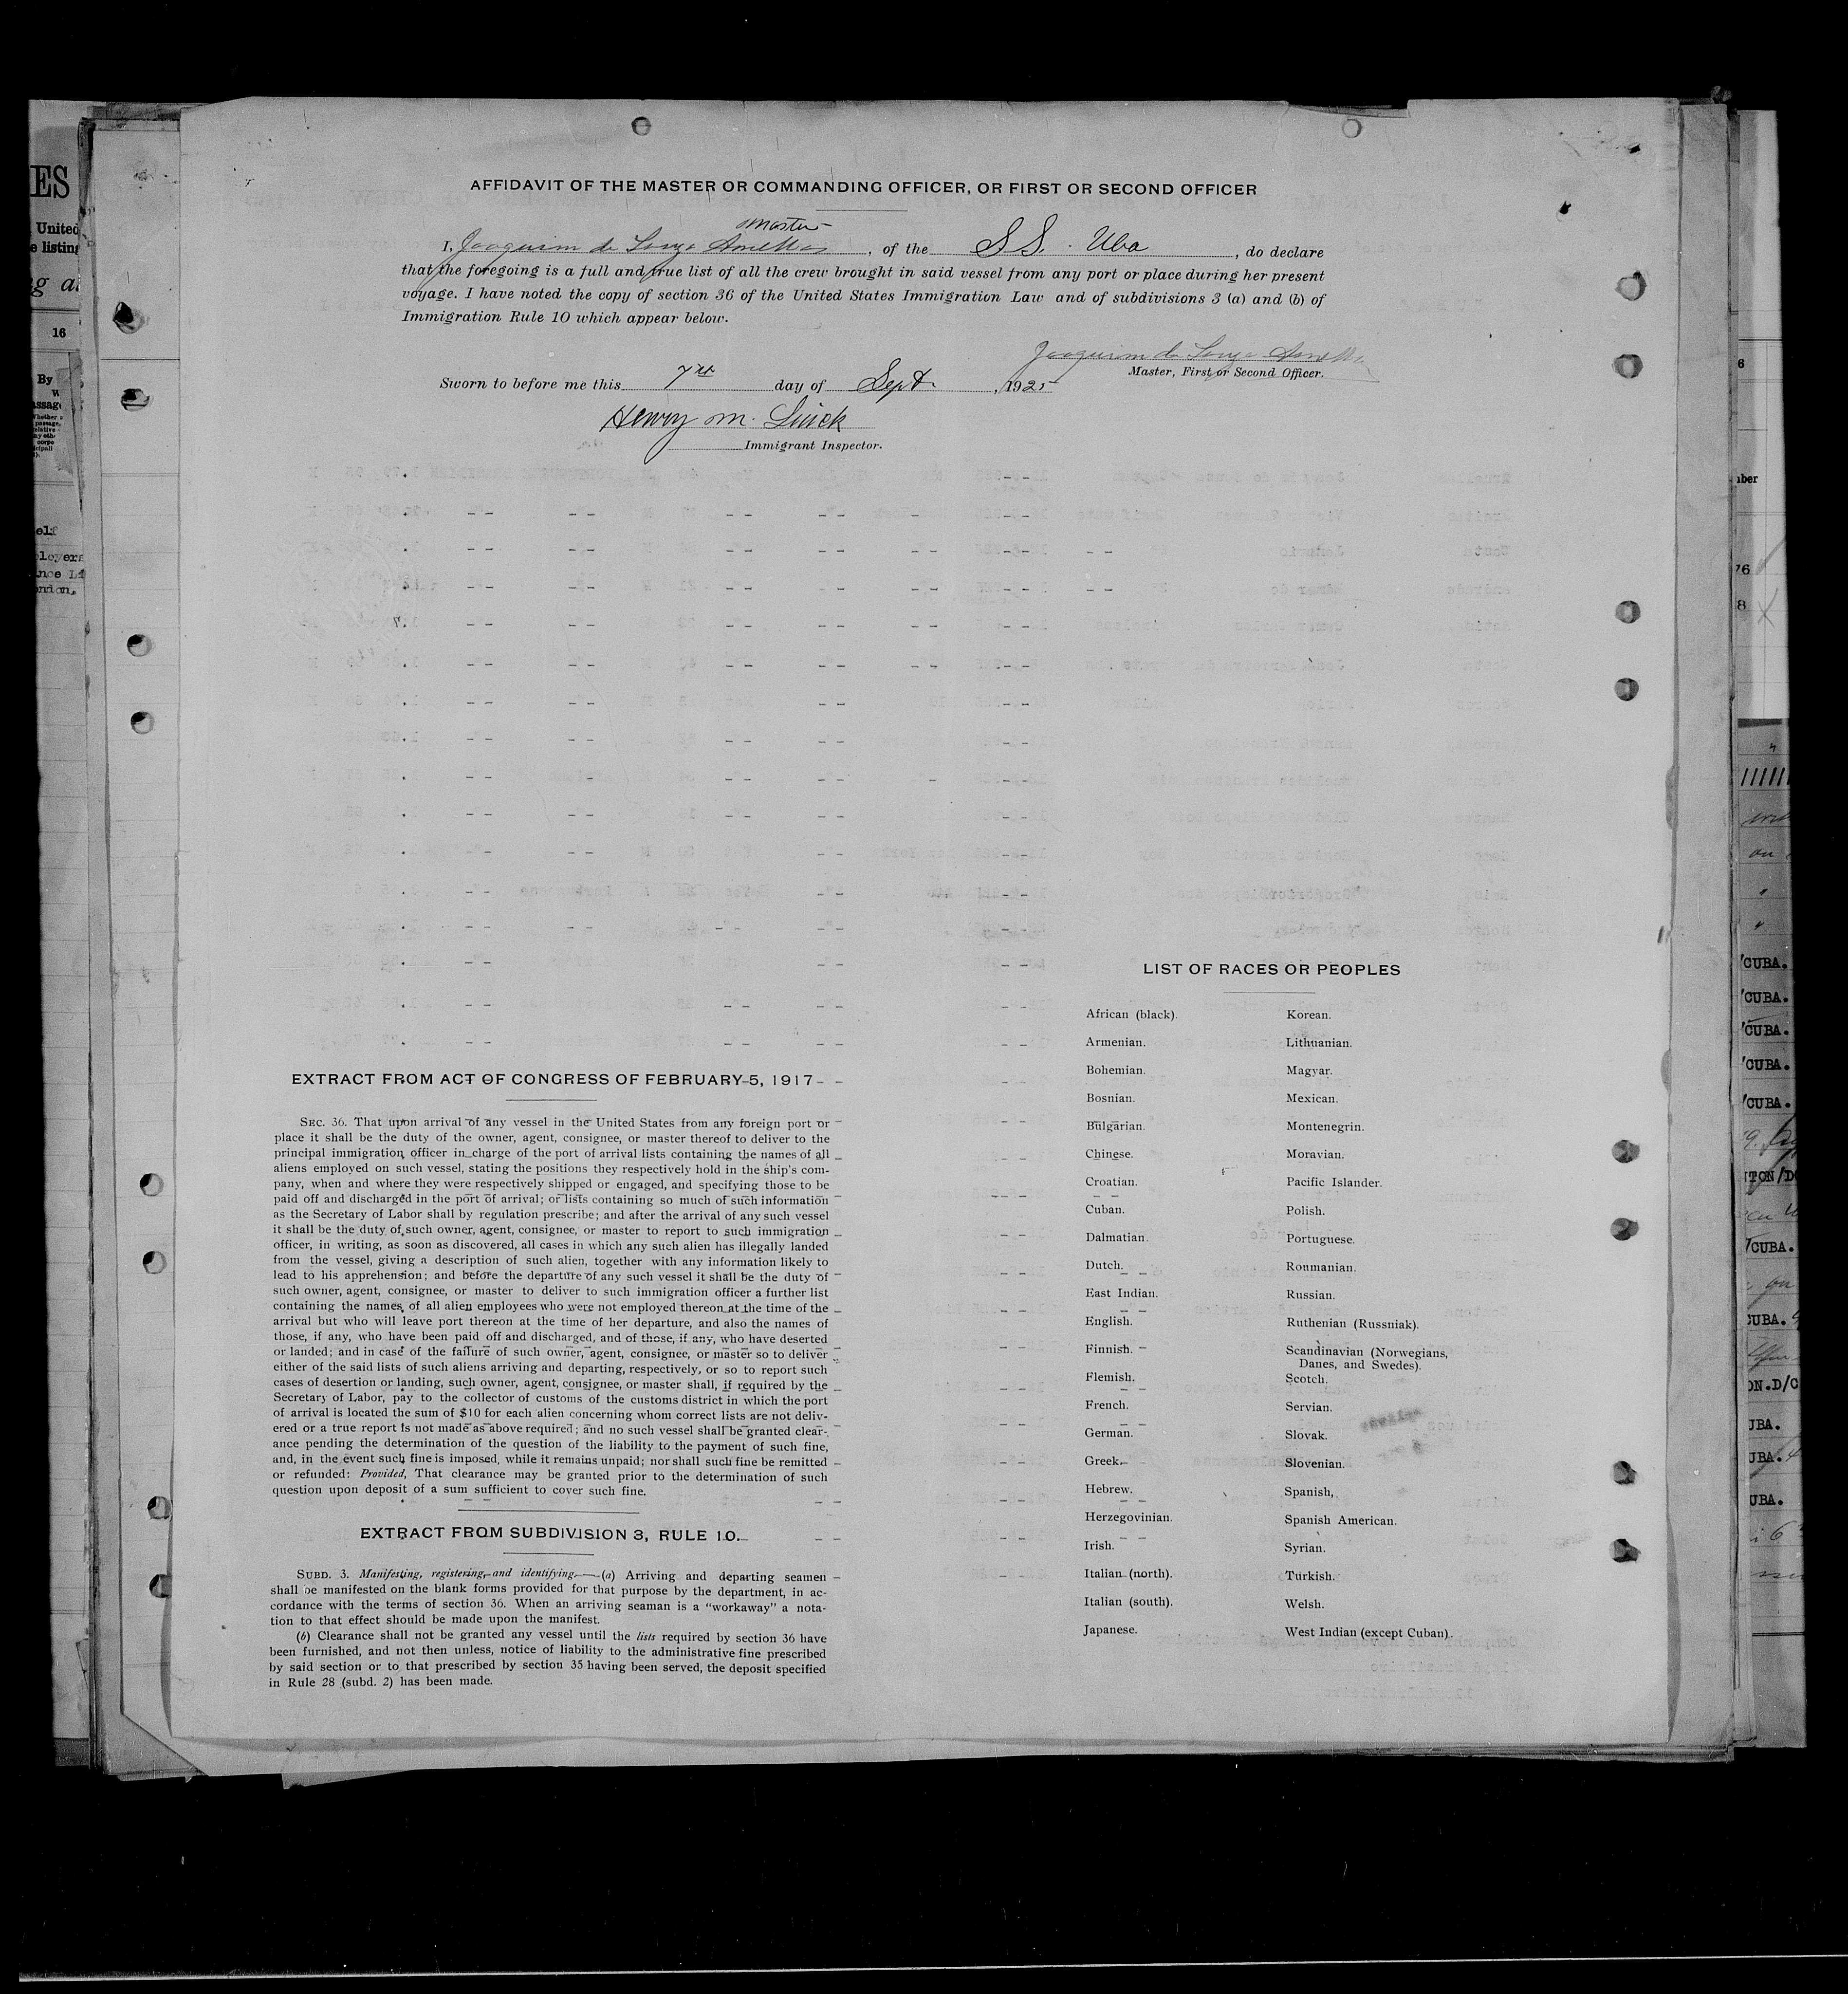 AFFIDAVIT OF THE MASTER OR COMMANDING OFFICER, OR FIRST OR SECOND OFFICER
Master
I, Joaquim de Souza Amellas, of the SS. Uba, do declare
that the foregoing is a full and true list of all the crew brought in said vessel from any port or place during her present
voyage. I have noted the copy of section 36 of the United States Immigration Law and of subdivisions 3 (a) and (b) of
Immigration Rule 10 which appear below.
Joaquim de Souza
Master, First or Second Officer.
Sworn to before me this 7th day of Sept., 1925
Henry M.
Immigrant Inspector.
EXTRACT FROM ACT OF CONGRESS OF FEBRUARY 5, 1917
SEC. 36. That upon arrival of any vessel in the United States from any foreign port or
place it shall be the duty of the owner, agent, consignee, or master thereof to deliver to the
principal immigration officer in charge of the port of arrival lists containing the names of all
aliens employed on such vessel, stating the positions they respectively hold in the ship's com-
pany, when and where they were respectively shipped or engaged, and specifying those to be
paid off and discharged in the port of arrival; or lists containing so much of such information
as the Secretary of Labor shall by regulation prescribe; and after the arrival of any such vessel
it shall be the duty of such owner, agent, consignee, or master to report to such immigration
officer, in writing, as soon as discovered, all cases in which any such alien has illegally landed
from the vessel, giving a description of such alien, together with any information likely to
lead to his apprehension; and before the departure of any such vessel it shall be the duty of
such owner, agent, consignee, or master to deliver to such immigration officer a further list
containing the names of all alien employees who were not employed thereon at the time of the
arrival but who will leave port thereon at the time of her departure, and also the names of
those, if any, who have been paid off and discharged, and of those, if any, who have deserted
or landed; and in case of the failure of such owner, agent, consignee, or master so to deliver
either of the said lists of such aliens arriving and departing, respectively, or so to report such
cases of desertion or landing, such owner, agent, consignee, or master shall, if required by the
Secretary of Labor, pay to the collector of customs of the customs district in which the port
of arrival is located the sum of $10 for each alien concerning whom correct lists are not deliv-
ered or a true report is not made as above required; and no such vessel shall be granted clear-
ance pending the determination of the question of the liability to the payment of such fine,
and, in the event such fine is imposed, while it remains unpaid; nor shall such fine be remitted
or refunded: Provided, That clearance may be granted prior to the determination of such
question upon deposit of a sum sufficient to cover such fine.
EXTRACT FROM SUBDIVISION 3, RULE 10.
SUBD. 3. Manifesting, registering, and identifying.—(a) Arriving and departing seamen
shall be manifested on the blank forms provided for that purpose by the department, in ac-
cordance with the terms of section 36. When an arriving seaman is a "workaway" a nota-
tion to that effect should be made upon the manifest.
(b) Clearance shall not be granted any vessel until the lists required by section 36 have
been furnished, and not then unless, notice of liability to the administrative fine prescribed
by said section or to that prescribed by section 35 having been served, the deposit specified
in Rule 28 (subd. 2) has been made.
LIST OF RACES OR PEOPLES
African (black).
Armenian.
Bohemian.
Bosnian.
Bulgarian.
Chinese.
Croatian.
Cuban.
Dalmatian.
Dutch.
East Indian.
English.
Finnish.
Flemish.
French.
German.
Greek.
Hebrew.
Herzegovinian.
Irish.
Italian (north).
Italian (south).
Japanese.
Korean.
Lithuanian.
Magyar.
Mexican.
Montenegrin.
Moravian.
Pacific Islander.
Polish.
Portuguese.
Roumanian.
Russian.
Ruthenian (Russniak).
Scandinavian (Norwegians,
Danes, and Swedes).
Scotch.
Servian.
Slovak.
Slovenian.
Spanish,
Spanish American.
Syrian.
Turkish.
Welsh.
West Indian (except Cuban).